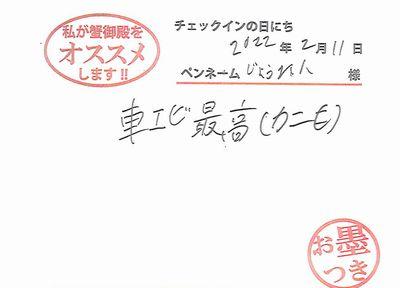 私が蟹御殿を
オススメ
します!!
チェックインの日にち
2022年2月11日
ペンネーム じょうれん 様
車エビ最高(カニも)
お墨
つき